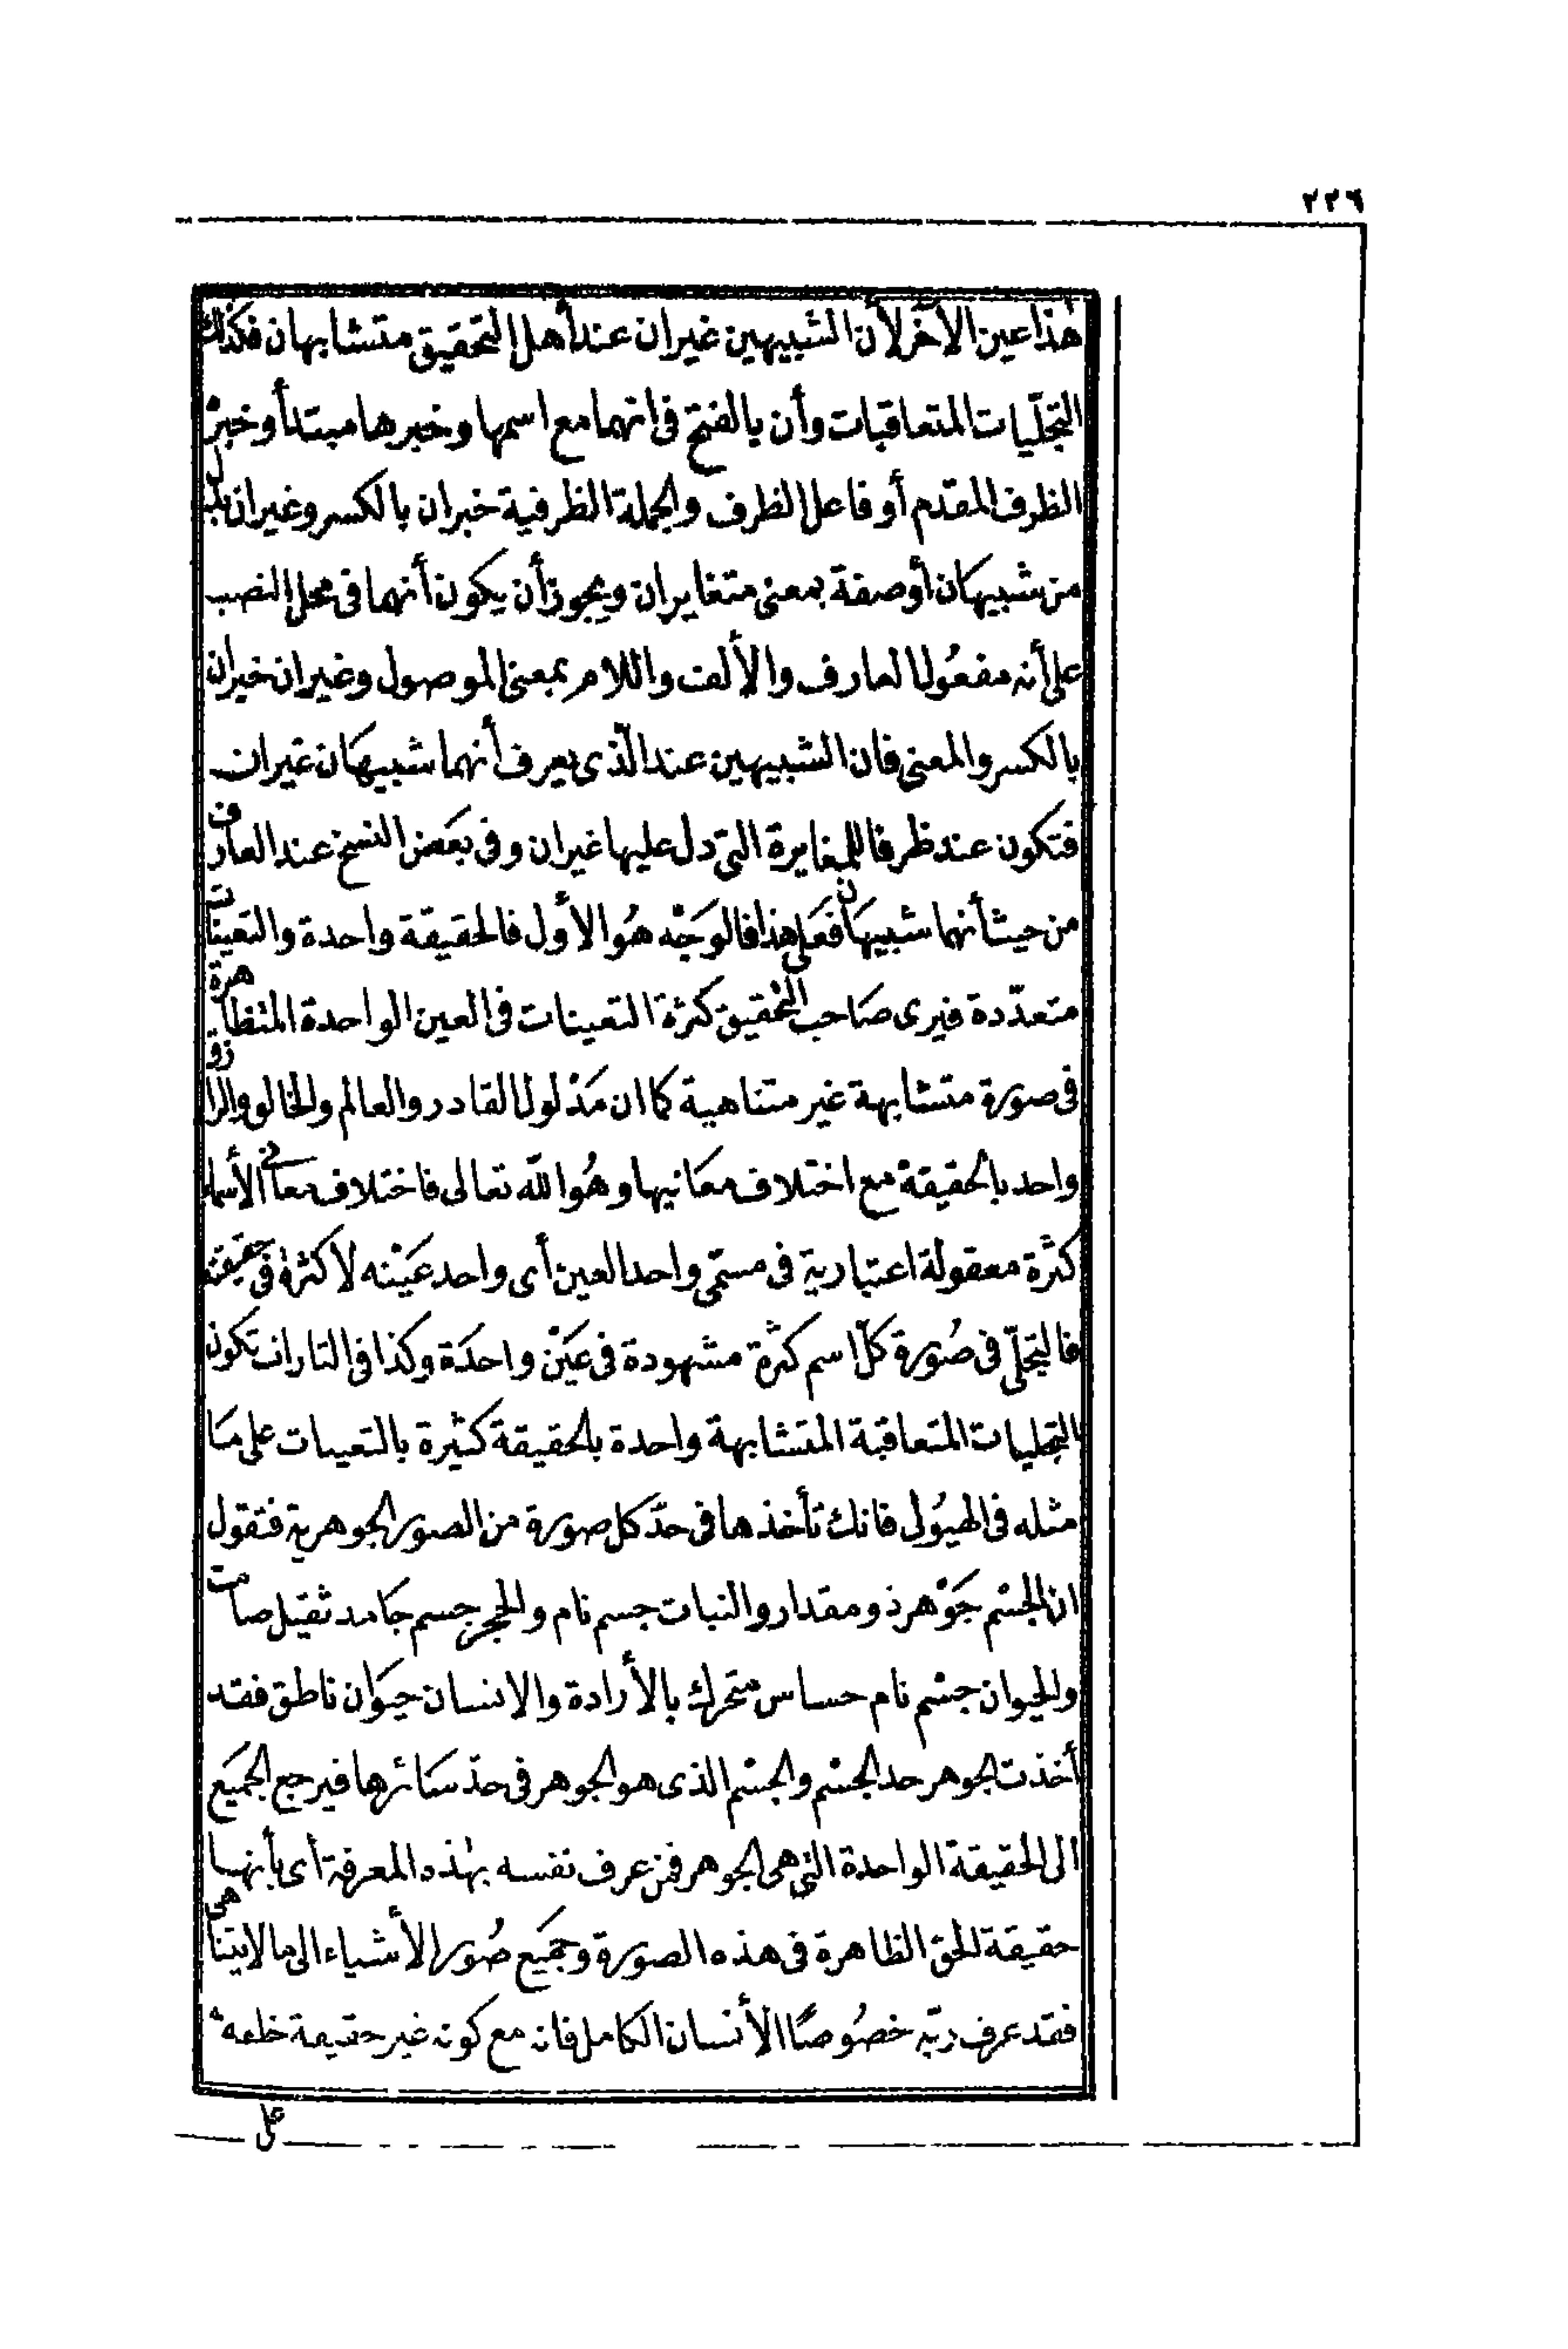 ٢٢٦
هٰذا عين الآخر لأن الشبيهين غيران عند أهل التحقيق متشابهان فكذلك
التجلّيات المتعاقبات وأن بالفتح فى انهما مع اسمها وخبرها مبتدأ وخبرْ
الظرف المقدم أو فاعل الظرف والجملة الظرفية خبر ان بالكسر وغيران بدل
من شبيهان أو صفة بمعنى متغايران ويجوز أن يكون أنهما فى محل النصب
على أنه مفعُول العارف والألف واللام بمعنى الموصول وغيران خبر ان
بالكسر والمعنى فان الشبيهين عند الّذى يعرف أنهما شبيهان غيران
فتكون عند ظرفا للمغايرة التى دل عليها غيران وفى بعض النسخ عند العارف
من حيث أنهما شبيهان فعَلى هذا فالوجْه هُو الأول فالحقيقة واحدة والتعينات
متعدّدة فيرى صَاحب التحقيق كثرة التعينات فى العين الواحدة المتظاهرة
فى صورة متشابهة غير متناهية كما ان مَدْلول القادر والعالم والخالق والرازق
واحد بالحقيقة مع اختلاف معَانيها وهُو الله تعالى فاختلاف معانى الأسماء
كثْرة معقولة اعتبارية فى مسمّى واحد العين أى واحد عَيْنه لا كثرة فى حقيقته
فالتجلّى فى صُورة كلّ اسم كثْرة مشهودة فى عَيْن واحدَة وكذا فى التارات تكون
التجليات المتعاقبة المتشابهة واحدة بالحقيقة كثيرة بالتعينات على مَا
مثله فى الهيُولى فانك تأخذها فى حدّ كل صورة من الصور الجوهرية فتقول
ان الجسْم جَوْهر ذو مقدار والنبات جسم نام والحجر جسم جَامد ثقيل صامت
والحيوان جسْم نام حساس متحرك بالأرادة والانسان حيَوان ناطق فقد
أخذت الجوهر حد الجسْم والجسْم الذى هو الجوهر فى حدّ سَائرها فيرجع الجميَع
الى الحقيقة الواحدة التى هى الجوهر فمن عرف نفسه بهٰذه المعرفة أى بأنها
حقيقة الحق الظاهرة فى هذه الصورة وجميَع صُور الأشياء الى ما لا يتناهى
فقد عرف ربّه خصُوصًا الأنسان الكامل فانه مع كونه غير حقيقة خلقه
على